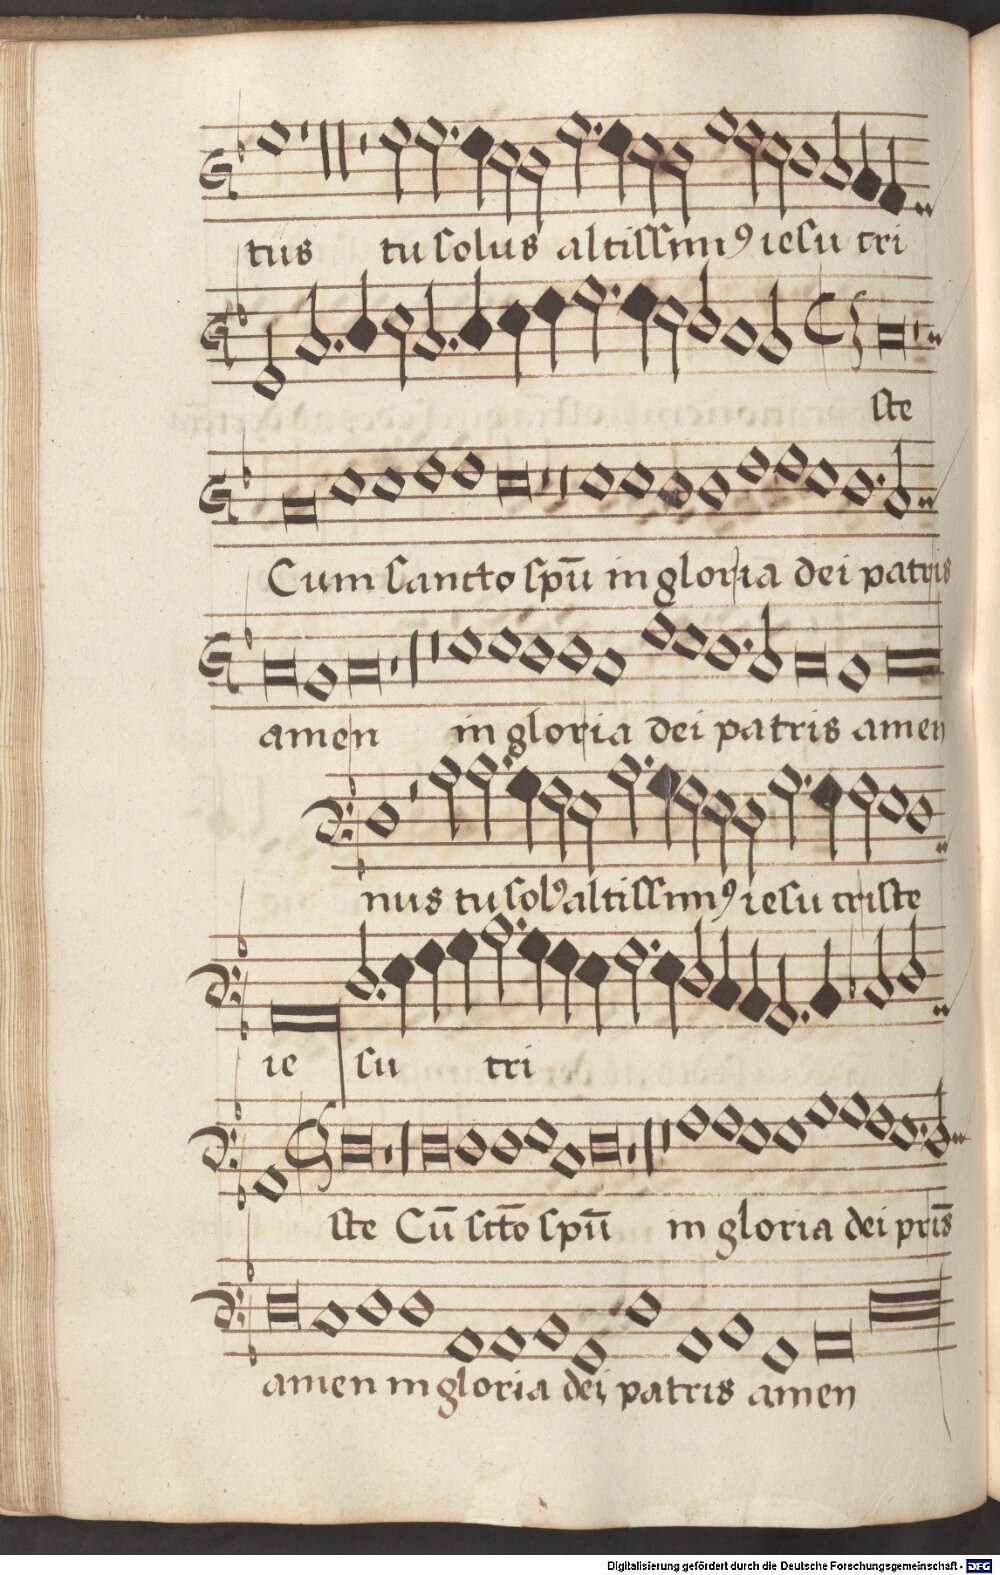 tus tu solus altissimꝰ iesu cri
ste
Cum sancto spū in gloria dei patris
amen in gloria dei patris amen
nus tu solꝰ altissimꝰ iesu criste
ie su cri
ste Cū scto spū in gloria dei pris
amen in gloria dei patris amen
Digitalisierung gefördert durch die Deutsche Forschungsgemeinschaft - DFG